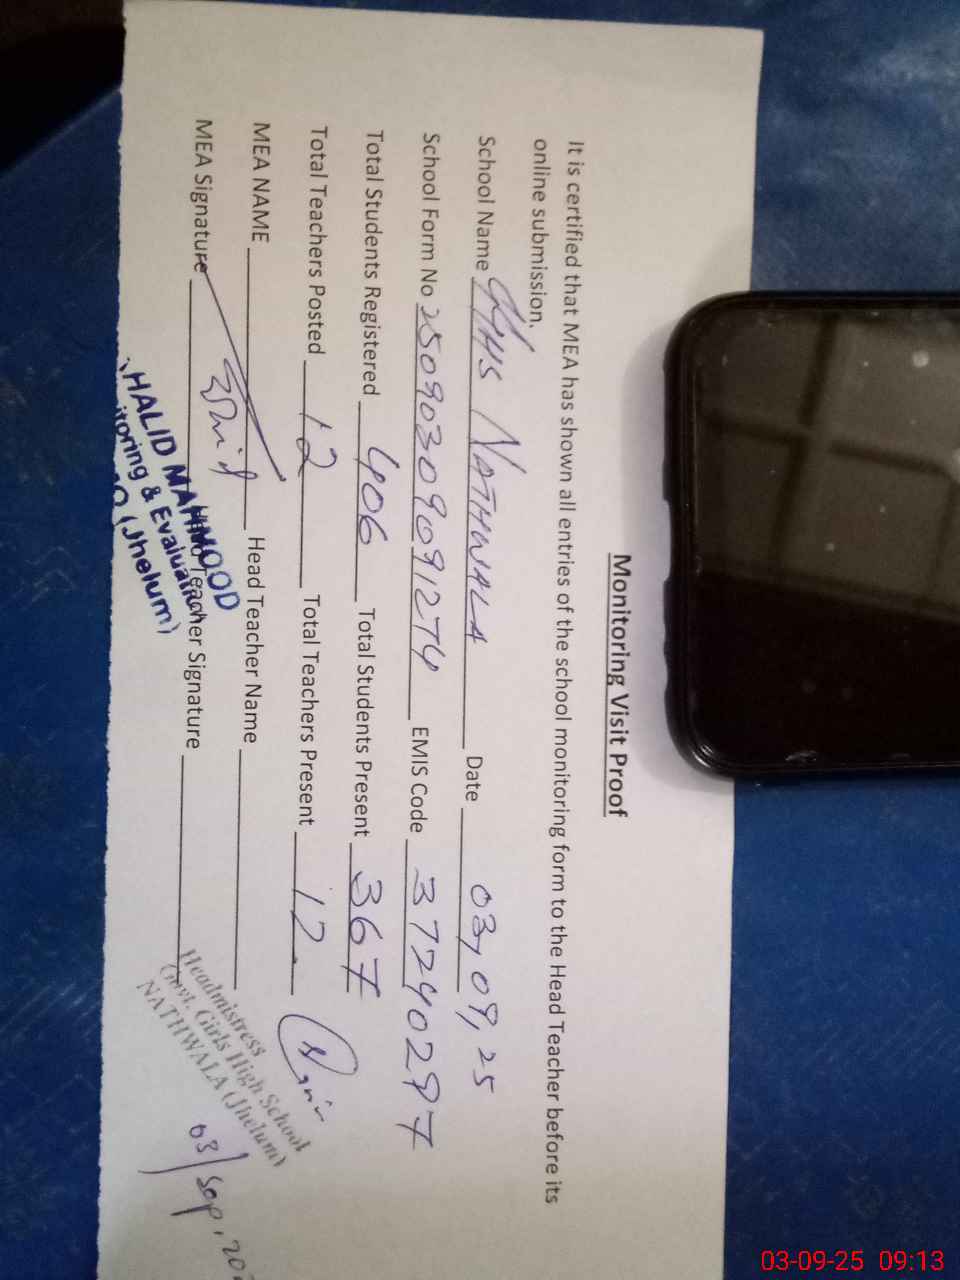 Monitoring Visit Proof
It is certified that MEA has shown all entries of the school monitoring form to the Head Teacher before its
online submission.
School Name GGHS NATHWALA Date 03,09,25
School Form No 2509030909091274 EMIS Code 37240297
Total Students Registered 406 Total Students Present 367
Total Teachers Posted 12 Total Teachers Present 12
MEA NAME Head Teacher Name
MEA Signature Teacher Signature
HALID MAHMOOD
itoring & Evaluati
(Jhelum)
Headmistress
Govt. Girls High School
NATHWALA (Jhelum)
03/Sep, 20
03-09-25 09:13